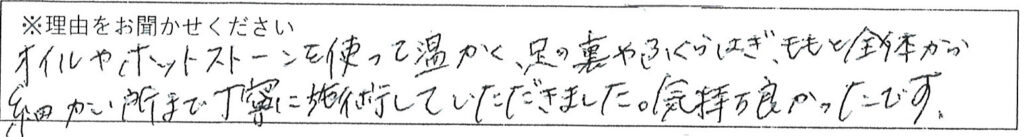 ※理由をお聞かせください
オイルやホットストーンを使って温かく、足の裏やふくらはぎ、ももと全体から
細かい所まで丁寧に施術していただきました。気持ち良かったです。